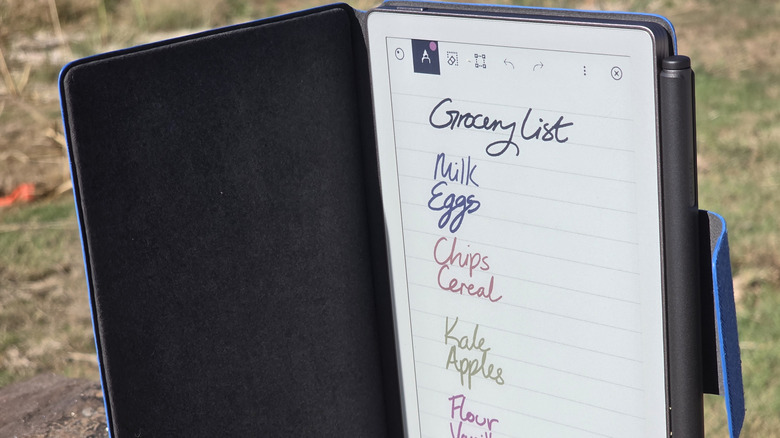 Grocery List
Milk
Eggs
Chips
Cereal
Kale
Apples
Flour